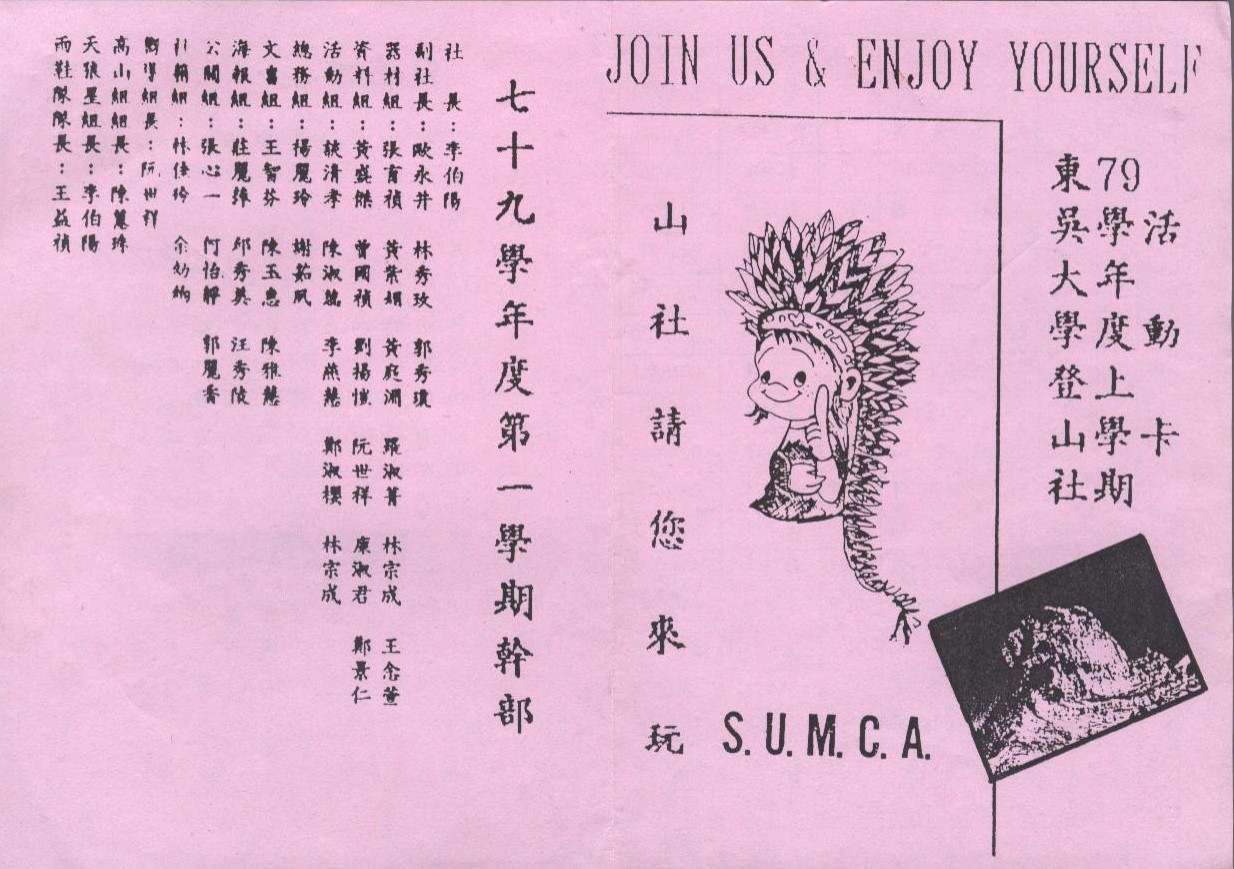 JOIN US & ENJOY YOURSELF
79學年度上學期
東吳大學登山社
活動卡
山社請您來玩
S.U.M.C.A.
七十九學年度第一學期幹部
社長：李伯陽
副社長：歐永井 林秀玫 郭秀瓊
器材組：張育禎 黃紫娟 黃庭淵 羅淑菁 林宗成 王念萱
資料組：黃盛傑 曾國禎 劉揚愷 阮世祥 康淑君 鄭景仁
活動組：談清孝 陳淑 李燕慧 鄭淑櫻 林宗成
總務組：楊麗玲 謝茹夙
文書組：王智芬 陳玉惠 陳雅慧
海報組：莊麗 邱秀美 汪秀陵
公關組：張心一 何怡靜 郭麗香
社籍組：林佳玲 余幼納
嚮導組長：阮世祥
高山組組長：陳慧珠
天狼星組長：李伯陽
雨鞋隊隊長：王益禎